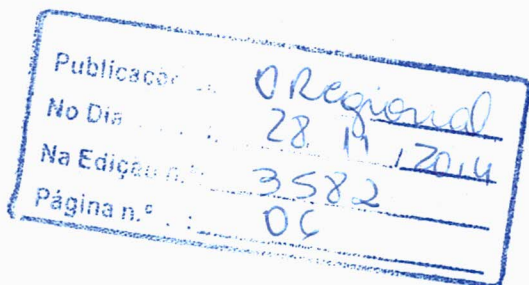 Publicação O Regional
No Dia 28 11 2014
Na Edição n.º 3582
Página n.º : 06